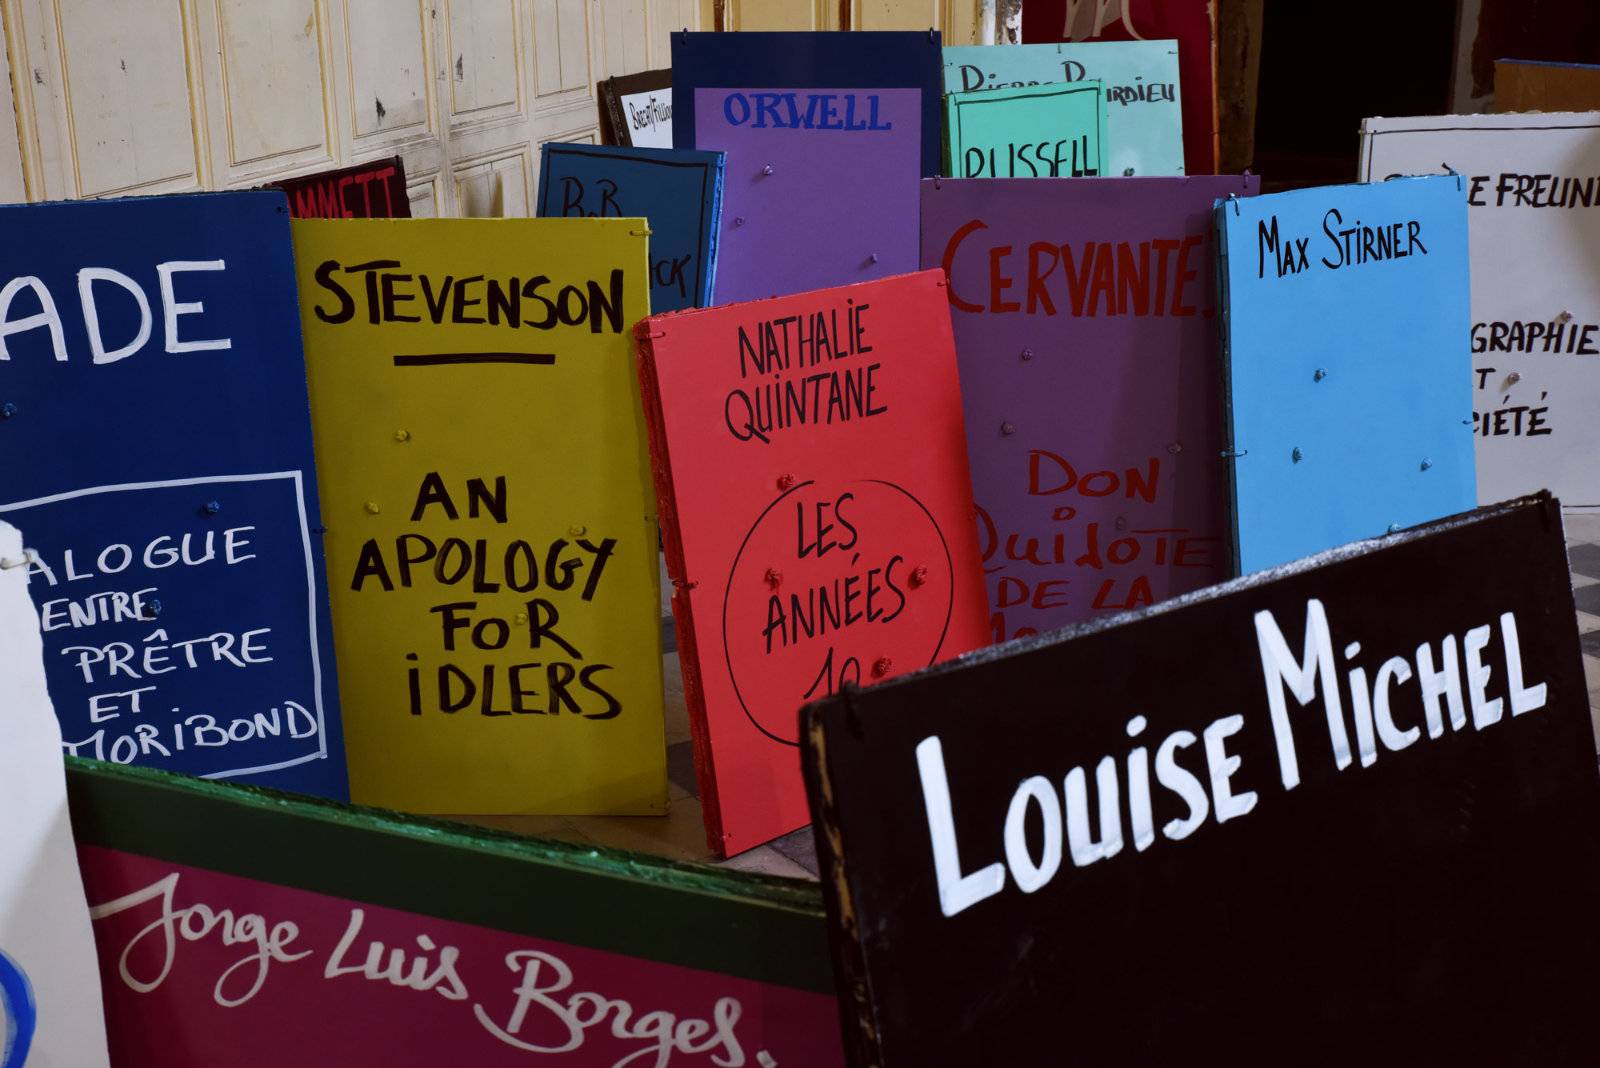 BRECHT/FILLIOU
ORWELL
Pierre B RDIEU
RUSSELL
MMETT
BOB
CK
ADE
ALOGUE
ENTRE
PRÊTRE
ET
MORIBOND
STEVENSON
AN
APOLOGY
FOR
IDLERS
NATHALIE
QUINTANE
LES
ANNÉES
10
CERVANTES
DON
QUiJOTE
DE LA
MAX STIRNER
E FREUN
GRAPHIE
T
CIÉTÉ
LOUISE MICHEL
Jorge Luis Borges.